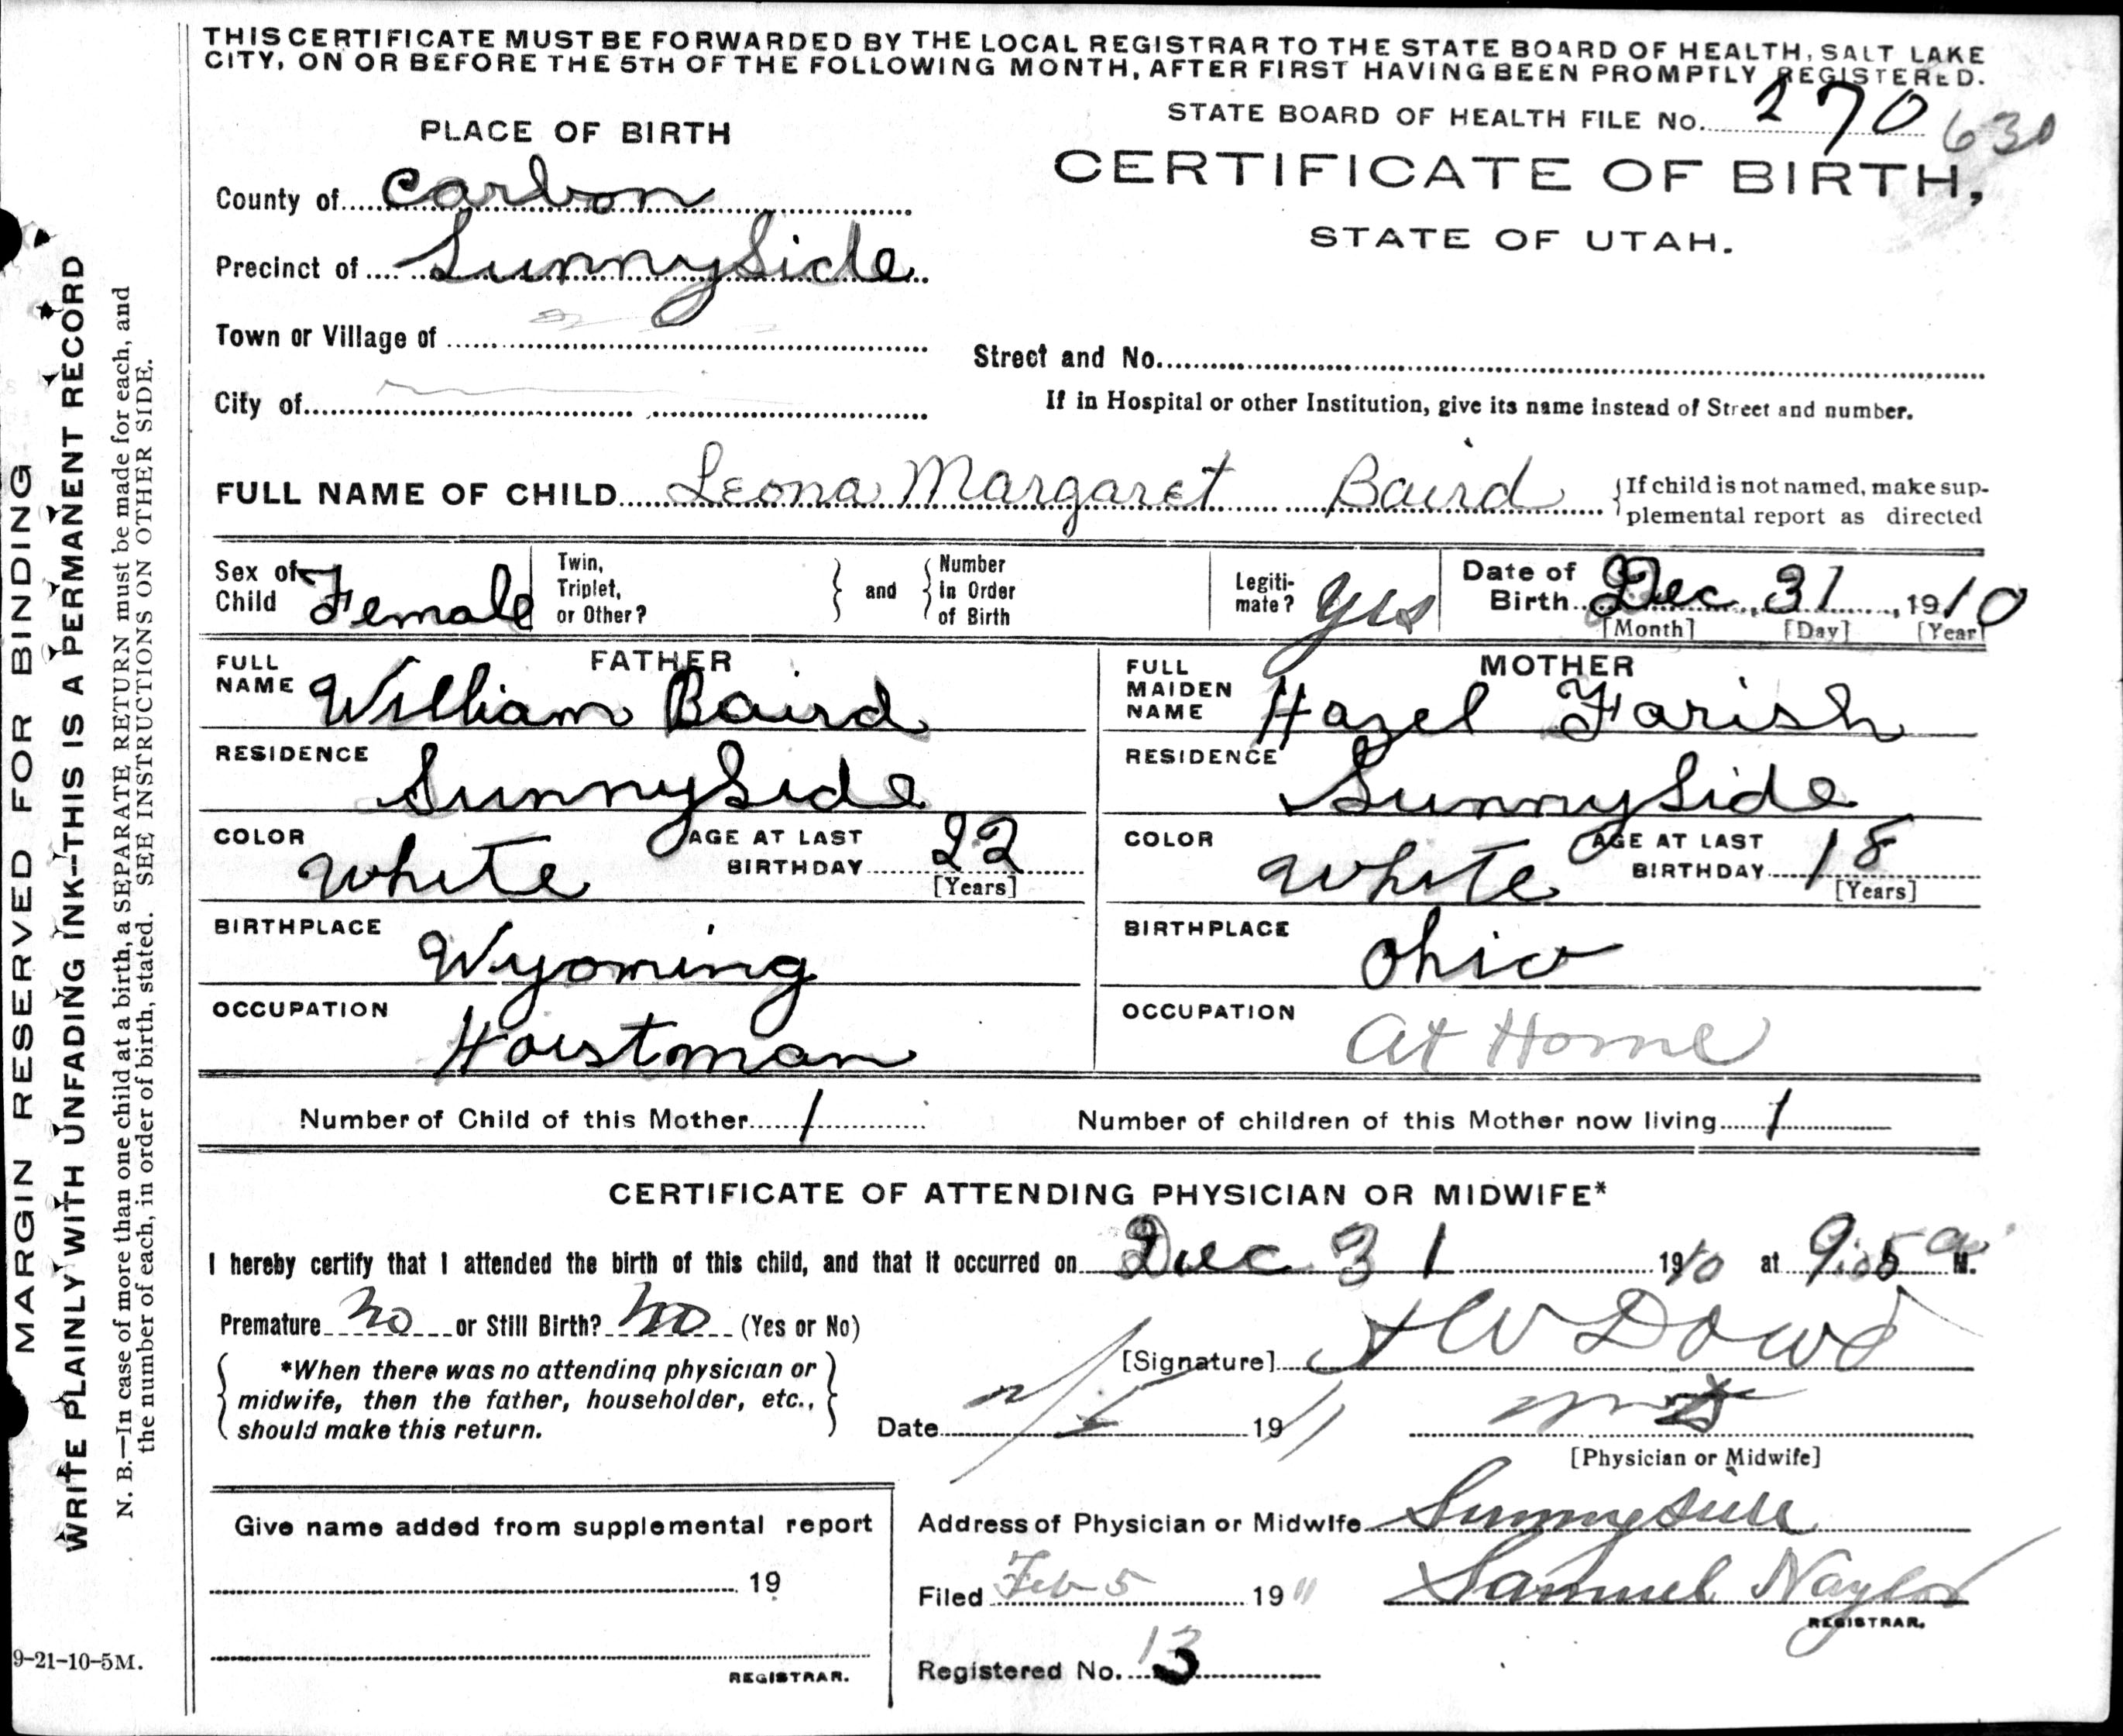 THIS CERTIFICATE MUST BE FORWARDED BY THE LOCAL REGISTRAR TO THE STATE BOARD OF HEALTH, SALT LAKE
CITY, ON OR BEFORE THE 5TH OF THE FOLLOWING MONTH, AFTER FIRST HAVING BEEN PROMPTLY REGISTERED.
STATE BOARD OF HEALTH FILE No. 270 630
PLACE OF BIRTH
CERTIFICATE OF BIRTH,
STATE OF UTAH.
County of Carbon
Precinct of SunnySide
Town or Village of
Street and No.
City of
If in Hospital or other Institution, give its name instead of Street and number.
FULL NAME OF CHILD Leona Margaret Baird {If child is not named, make sup-
plemental report as directed
Sex of Child Female
Twin, Triplet, or Other? } and { Number In Order of Birth
Legiti-mate? yes
Date of Birth Dec 31, 1910
[Month] [Day] [Year]
FATHER
FULL NAME William Baird
RESIDENCE SunnySide
COLOR White AGE AT LAST BIRTHDAY 22 [Years]
BIRTHPLACE Wyoming
OCCUPATION Hoistman
MOTHER
FULL MAIDEN NAME Hazel Farish
RESIDENCE SunnySide
COLOR White AGE AT LAST BIRTHDAY 18 [Years]
BIRTHPLACE Ohio
OCCUPATION At Home
Number of Child of this Mother 1 Number of children of this Mother now living 1
CERTIFICATE OF ATTENDING PHYSICIAN OR MIDWIFE*
I hereby certify that I attended the birth of this child, and that it occurred on Dec 31 1910 at 9:05 a M.
Premature no or Still Birth? no (Yes or No)
{ *When there was no attending physician or }
midwife, then the father, householder, etc.,
should make this return.
[Signature] Dowd
Date 1911
[Physician or Midwife]
Give name added from supplemental report
19
REGISTRAR.
Address of Physician or Midwife Sunnyside
Filed Feb 5 1911 Samuel Naylor
REGISTRAR.
Registered No. 13
MARGIN RESERVED FOR BINDING
WRITE PLAINLY WITH UNFADING INK—THIS IS A PERMANENT RECORD
N. B.—In case of more than one child at a birth, a SEPARATE RETURN must be made for each, and
the number of each, in order of birth, stated. SEE INSTRUCTIONS ON OTHER SIDE.
9-21-10-5M.